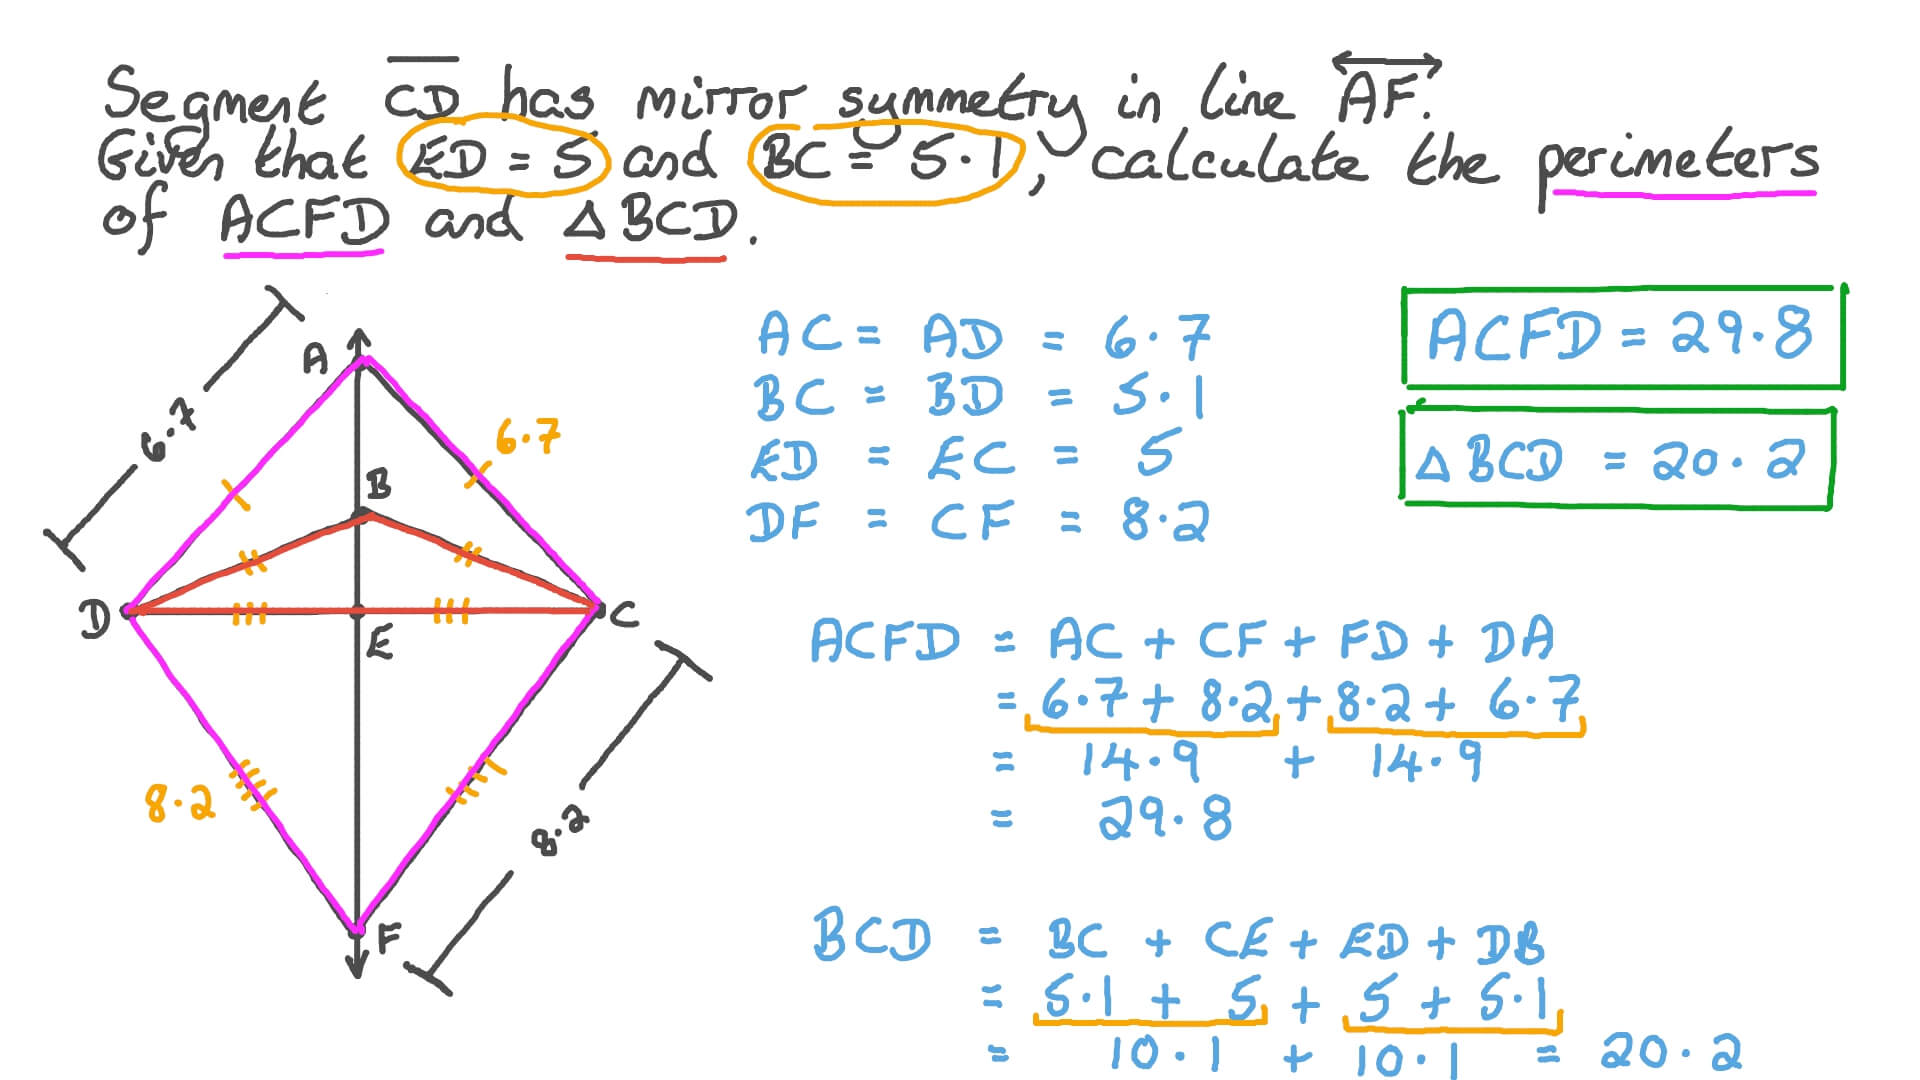 Segment CD has mirror symmetry in line AF.
Given that ED = 5 and BC = 5.1, calculate the perimeters
of ACFD and △BCD.
A
6.7
6.7
B
D
E
C
8.2
8.2
F
AC = AD = 6.7
BC = BD = 5.1
ED = EC = 5
DF = CF = 8.2
ACFD = 29.8
△ BCD = 20.2
ACFD = AC + CF + FD + DA
= 6.7 + 8.2 + 8.2 + 6.7
= 14.9 + 14.9
= 29.8
BCD = BC + CE + ED + DB
= 5.1 + 5 + 5 + 5.1
= 10.1 + 10.1 = 20.2